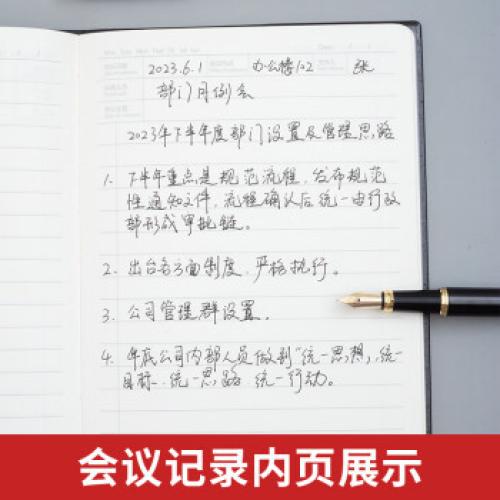 2023.6.1 办公楼102 张
部门月例会
2023年下半年度部门设置及管理思路
1. 下半年重点是规范流程，发布规范
性通知文件，流程确认后统一由行政
部形成审批链。
2. 出台各方面制度，严格执行。
3. 公司管理群设置。
4. 年底公司内部人员做到“统一思想，统一
目标、统一思路、统一行动。
会议记录内页展示